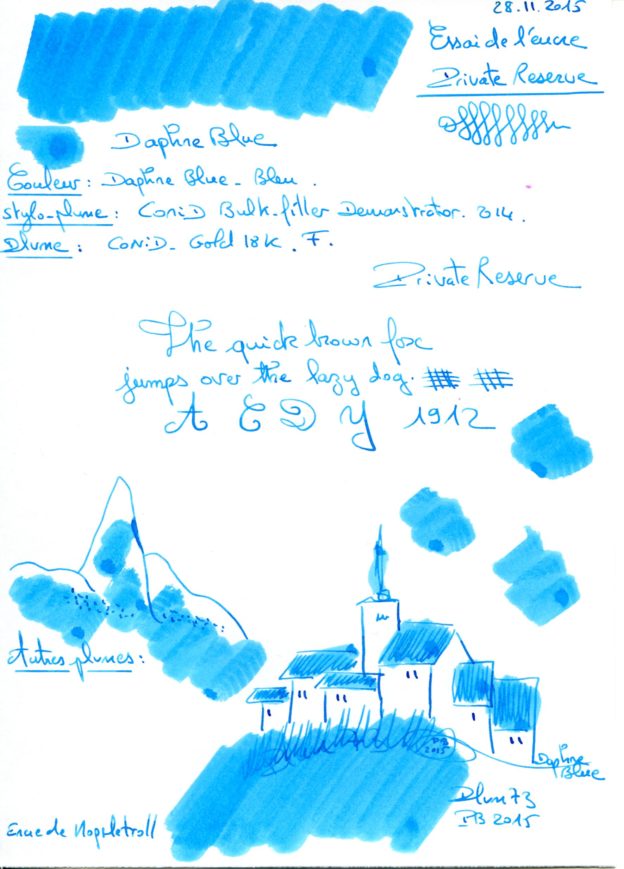 28.11.2015
Essai de l'encre
Private Reserve
Daphne Blue
Couleur : Daphne Blue - Bleu .
Stylo-plume : ConiD Bulk-filler Demonstrator. 2014.
Plume : CONiD - Gold 18K . F.
Private Reserve
The quick brown fox
jumps over the lazy dog.
A E D Y 1912
Autres plumes :
PB
2015
Daphne
Blue
Plum73
PB 2015
Encre de Noppletroll